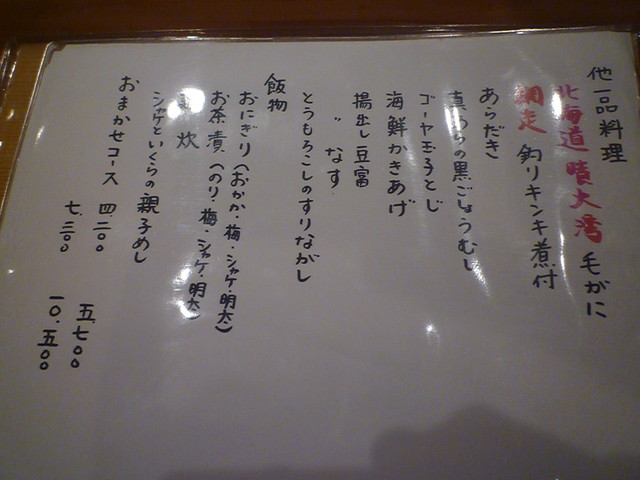 他一品料理
北海道 噴火湾 毛がに
網走 釣りキンキ煮付
あらだき
真だらの黒ごしょうむし
ゴーヤ玉子とじ
海鮮かきあげ
揚出し豆富
〃 なす
とうもろこしのすりながし
飯物
おにぎり(おかか・梅・シャケ・明太)
お茶漬(のり・梅・シャケ・明太)
炊
シャケといくらの親子めし
おまかせコース 四.二〇〇 五.七〇〇
七.三〇〇 一〇.五〇〇